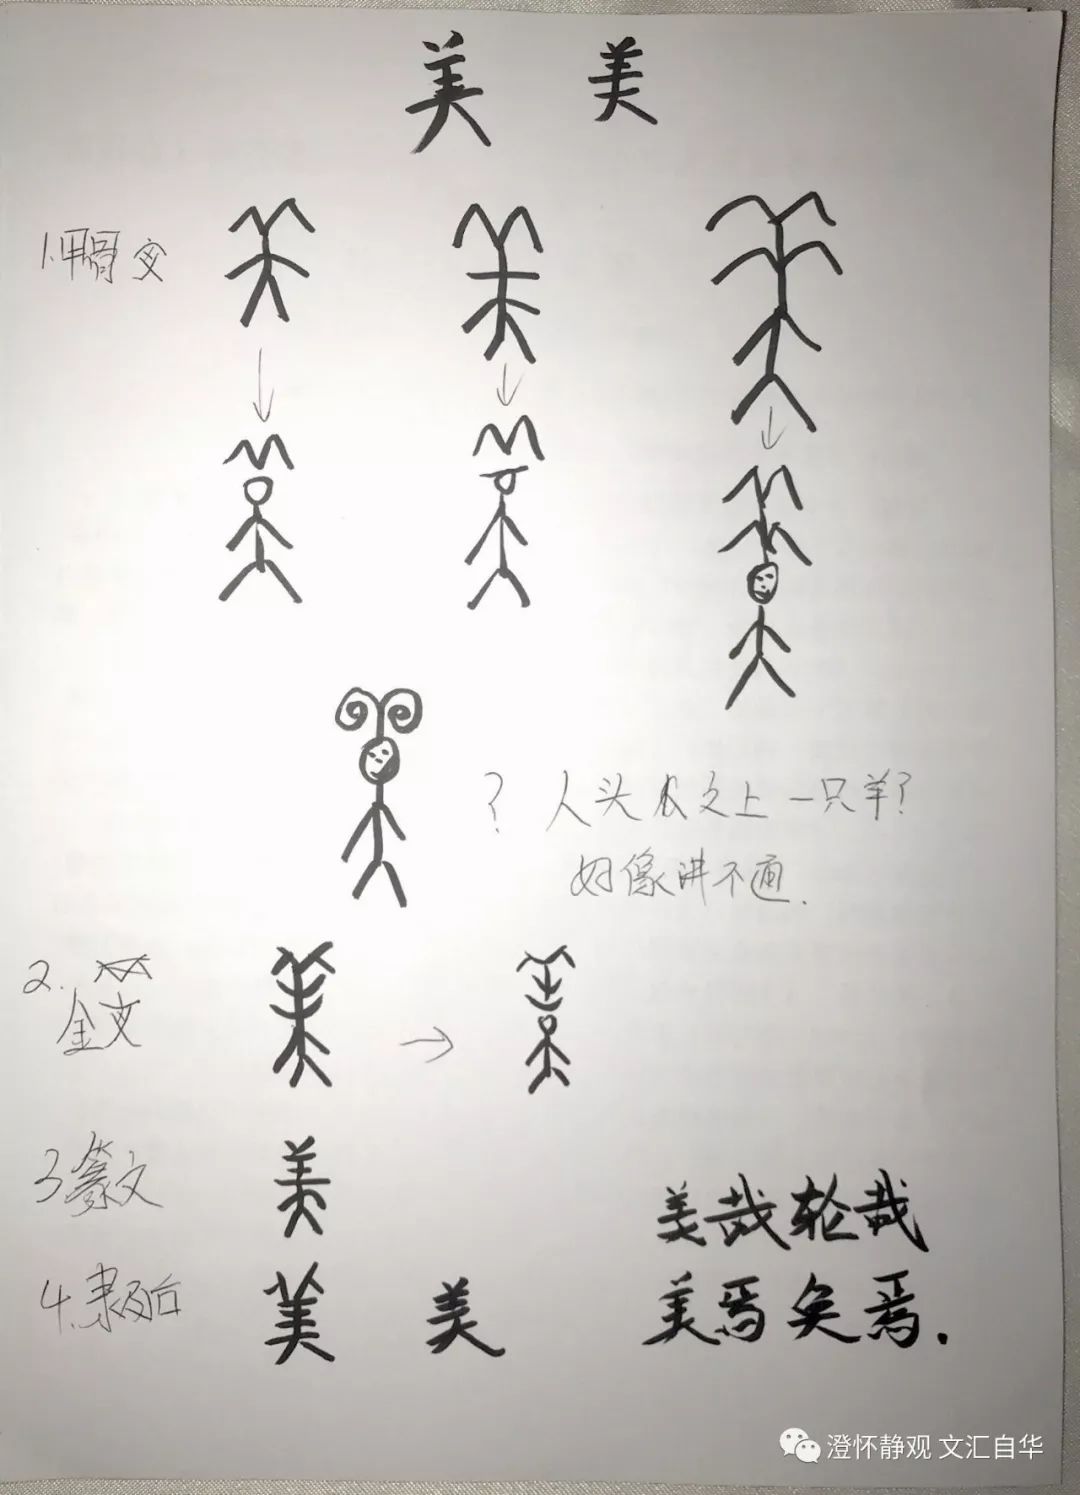 美 美
1.甲骨文
? 人头之上一只羊?
好像讲不通.
2.
金文
3篆文 美
美哉轮哉
4.隶及后 美 美
美焉奂焉.
澄怀静观 文汇自华